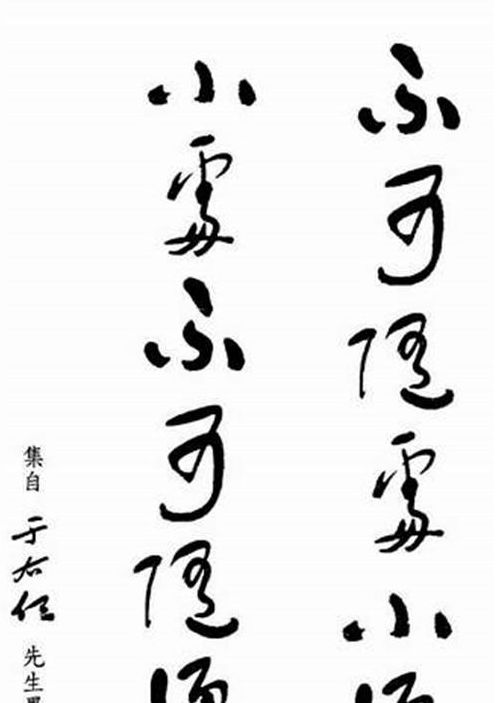 不可隨處小
小處不可隨
集自于右任先生